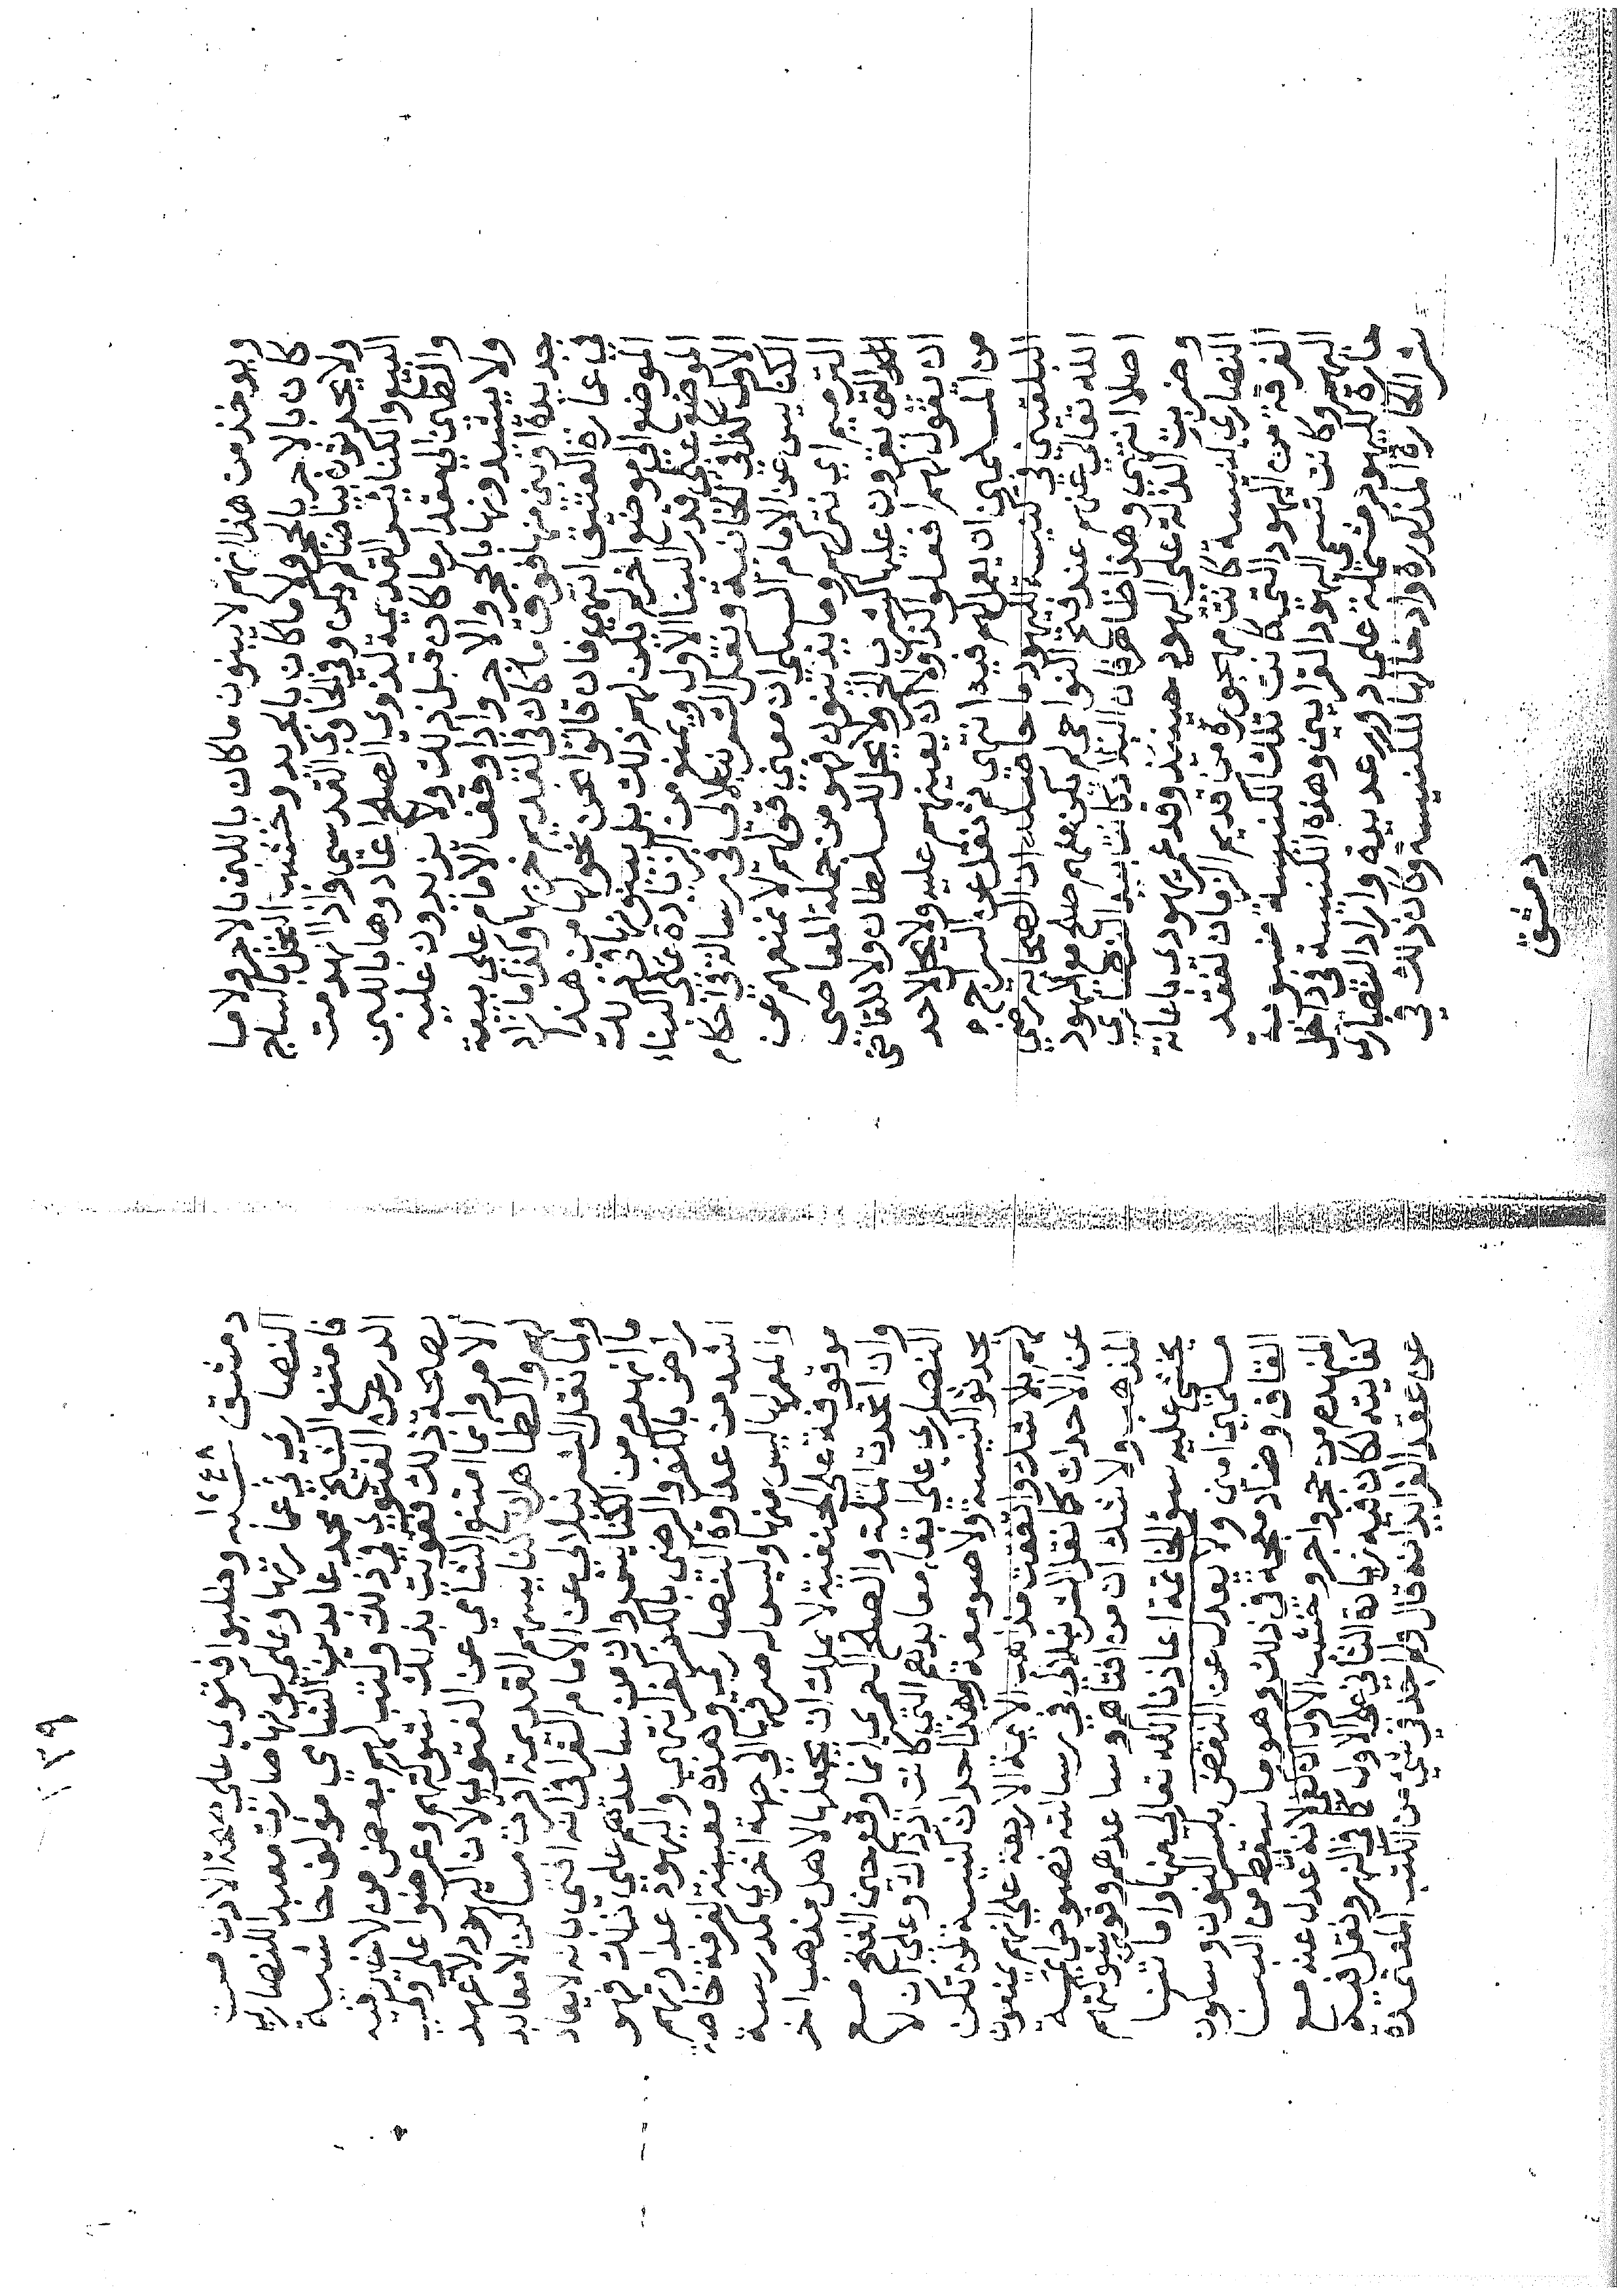 ويوخذ من هذا انهم لا يبنون ما كان باللبن بالاجر ولا ما
كان بالاجر بالحجر ولا ما كان بالجريد وخشب النخل بالساج
ولا يحدثون بياضا لم يكن وفي الحاوي القدسي واذا انهدمت
البيع والكنائس القديمة لذوي الصلح اعادوها باللبن
والطين الى مقدار ما كان قبل ذلك ولا يزيدون عليه
ولا يشيدونها بالحجر والاجر واذا وقف الامام على بيعة
جديدة او بنى منها فوق ما كان في القديم خربها وكذا ما زاد
في عمارة العتيق انتهى فان قالوا نحن نحولها من هذا
الموضع الى موضع اخر لم يكن لهم ذلك بل يبنونها في ذلك
الموضع على قدر البنا الاول ويمنعون من الزيادة على البناء
الاول كذا في الخانية ونقل الشرنبلالي في رسالته في احكام
الكنايس عن الامام السبكي ان معنى قولهم لا نمنعهم عن
الترميم اي نتركهم وما يدينون فهو من جملة المعاصي
التي يقرون عليها كشرب الخمر ولا يحل للسلطان ولا للقاضي
ان يقول لهم افعلوا كذا ولا ان يعينهم عليه ولا يحل لاحد
من المسلمين ان يعمل لهم فيه انتهى ثم نقل عن السراج
البلقيني في كنيسة لليهود ما حاصله ان الصحابة رضي
الله تعالى عنهم عند فتح النواحي لم يكن منهم صلح مع اليهود
اصلا انتهى وهذا ظاهر فان البلاد كانت بيد النصارى
وضربت الذلة على اليهود حينئذ وقد يهودي باعانة
النصارى كنيسة كانت مهجورة من قديم الزمان لفقد
الفرقة من اليهود التي كانت تلك الكنيسة منسوبة
اليهم وكانت تسمى اليهود القرايين وهذه الكنيسة في داخل
حارة اليهود مشتملة على دور عديدة واراد النصارى
الحارة المذكورة وادخالها للكنيسة وكان ذلك في
دمشق
١٣٩
دمشق سنة ١٢٤٨ وطلبوا فتوى على صحة الاذن من
النصارى في عمارتها وعلى كونها صارت معبدا للنصارى
فامتنع الشيخ محمد عابدين الشامي مؤلف حاشية
الدر عن الفتوى في ذلك وكتب لهم بعض من لا خبر فيه
بصحة ذلك فقويت بذلك شوكتهم وعرضوا على ولي
الامر وانما امتنع الشامي عن الفتوى لان اليهود لا عهد
لهم والظاهر ان كنايسهم القديمة اقرت مساكن لا معابد
ولما نقل الشرنبلالي عن الامام القرافي انه افتى بانه لا يعاد
ما انهدم من الكنايس وان من ساعدهم على ذلك فهو
راض بالكفر والرضى بالكفر كفر انتهى واليهود عداوتهم
اشد من عداوة النصارى وهذه معينة لفرقة خاصة
والمعمر لها ليس منها وليس له صرفها الى جهة اخرى كمدرسة
موقوفة على الحنفية لا يملك ان يجعلها لاهل مذهب اخر
وان اتحدت الملة والصلح العمري انما وقع حين الفتح مع
النصارى على ابقاء معابدهم التي كانت اذ ذاك وعلى ان لا
يحدثوا كنيسة ولا صومعة وهذا احداث كنيسة لم تكن
لهم بلا شك واتفقت مذاهب الايمة الاربعة على انهم يمنعون
عن الاحداث كما نقل الشرنبلالي في رسالته نصوص ايمة
المذهب ولا شك ان من افتاهم وساعدهم وقوى شوكتهم
يخشى عليه سوء الخاتمة اعاذنا الله تعالى منها واما تنا
مسلمين امين ولا يعدل عن النقض بكسر النون وسكون
القاف وضاد معجمة في ذلك وهو ما سقط من البنا
المنهدم من حجر واجر وخشب الاول ان كفى لانه عدل عنه مع
كفايته لكان فيه زيادة الثاني على الاول كما في النهر ونقل فيه
عن عقد الفرايد انه قال ولم اجد في شيء من الكتب المعتمدة